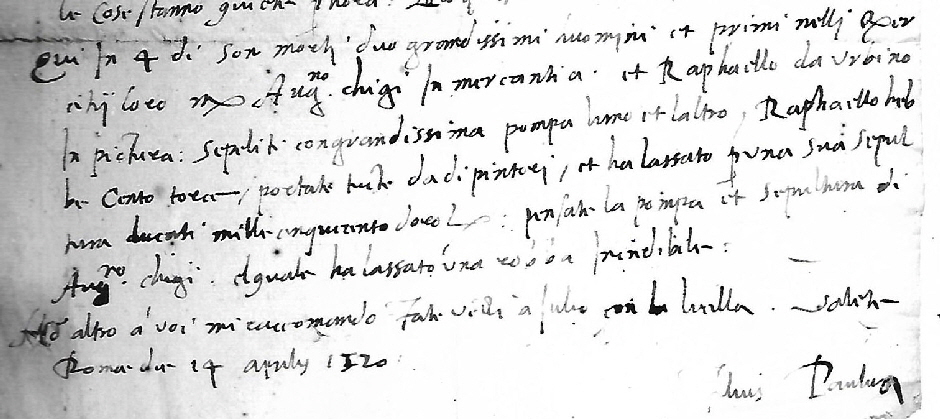 le Cose stanno qui che
Qui In 4 di son morti duo grandissimi uomini et primi nelli Exer
citij loro Mr Augno. chigi In mercantia. et Raphaello da Urbino
In pictura: Sepeliti con grandissima pompa luno et laltro, Raphaello heb
be Cento torce, portate tute da dipintori, et ha lassato p una sua sepul
tura ducati mille cinquecento doro: pensate la pompa et sepultura di
Augno. chigi. elquale ha lassato una robba Incredibile:
altro à voi mi raccomando Fate con la Valete
Romae die 14 aprilis 1520
Paulus